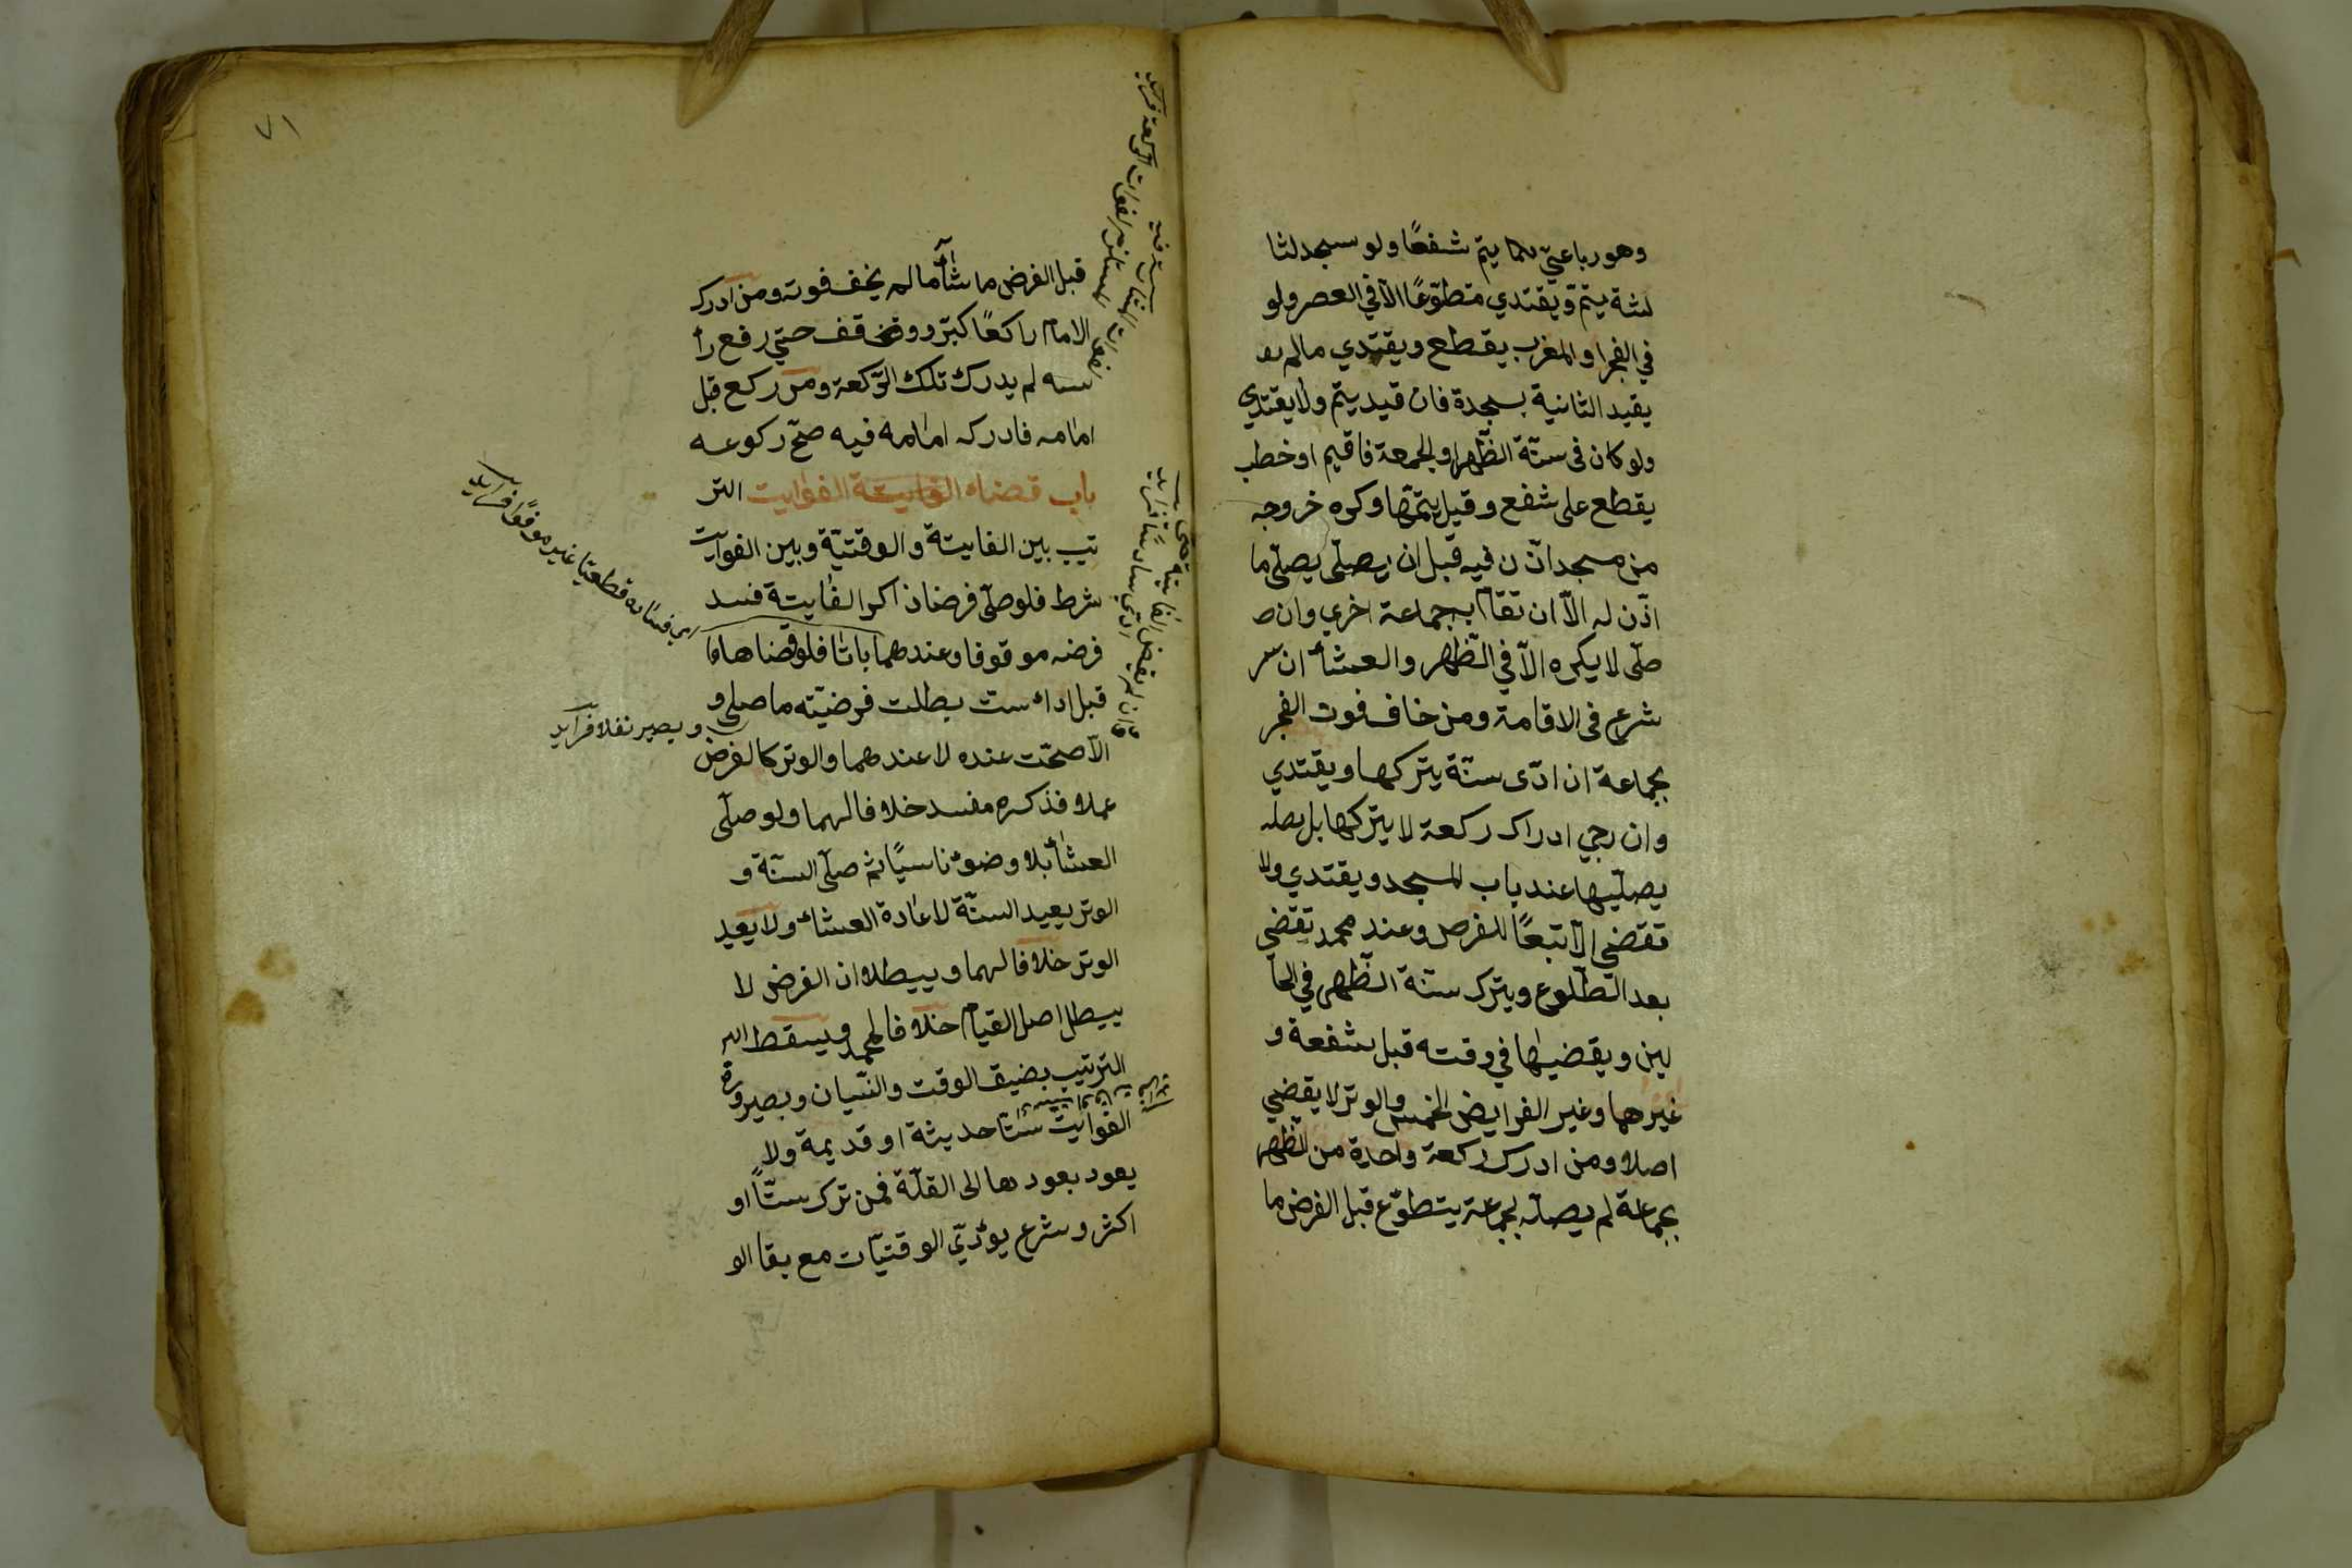 وهو رباعيّ يتمّ شفعًا ولو سجد لثا
لثة يتمّ ويقتدي متطوّعًا الّا في العصر ولو
في الفجر او المغرب يقطع ويقتدي مالم
يقيد الثانية بسجدة فان قيد يتم ولا يقتدي
ولو كان فى سنّة الظّهر او الجمعة فاقيم او خطب
يقطع على شفع وقيل يتمّها وكره خروجه
من مسجد اذّن فيه قبل ان يصلّى يصلّى ما
اذّن له الّا ان تقام به جماعة اخري وان ص
صلّى لا يكره الّا في الظّهر والعشاء ان
شرع فى الاقامة ومن خاف فوت الفجر
بجماعة ان ادّى سنّة يتركها ويقتدي
وان رجي ادراك ركعة لا يتركها بل يصله
يصلّيها عند باب المسجد ويقتدي ولا
تقضى الّا تبعًا للفرض وعند محمد تقضى
بعد الطّلوع ويترك سنّة الظّهر في الحا
لين ويقضيها في وقته قبل شفعة و
غيرها وغير الفرايض الخمس والوتر لا يقضي
اصلا ومن ادرك ركعة واحدة من الظّهر
بجماعة لم يصلّه بجماعة يتطوّع قبل الفرض ما
٧١
قبل الفرض ما شاء مالم يخف فوته ومن ادرك
الامام راكعًا كبّر ووقف حتي رفع رأ
سه لم يدرك تلك الرّكعة ومن ركع قبل
امامه فادركه امامه فيه صحّ ركوعه
باب قضاء الفوايت التر
تيب بين الفايتة والوقتيّة وبين الفوايت
شرط فلو صلّى فرضا ذاكرا لفايتة فسد
فرضه موقوفا وعندهما باتا فلو قضاها
قبل اداء ست بطلت فرضيّته ما صلى و
الّا صحّت عنده لا عندهما والوتر كالفرض
عملا فذكره مفسد خلافا لهما ولو صلّى
العشاء بلا وضوء ناسيًا ثم صلّى السنّة و
الوتر يعيد السنّة لاعادة العشاء ولا يعيد
الوتر خلافا لهما ويبطلان الفرض لا
يبطل اصل القيام خلافا لمحمد ويسقط
الترتيب بضيق الوقت والنّسيان وبصيرورة
الفوايت ستا حديثة او قديمة ولا
يعود بعودها الى القلّة فمن ترك ستًّا او
اكثر وشرع يؤدّي الوقتيّات مع بقا الو
اى فساده قطعيا غير موقوفا فرايد
ويصير نفلا فرايد